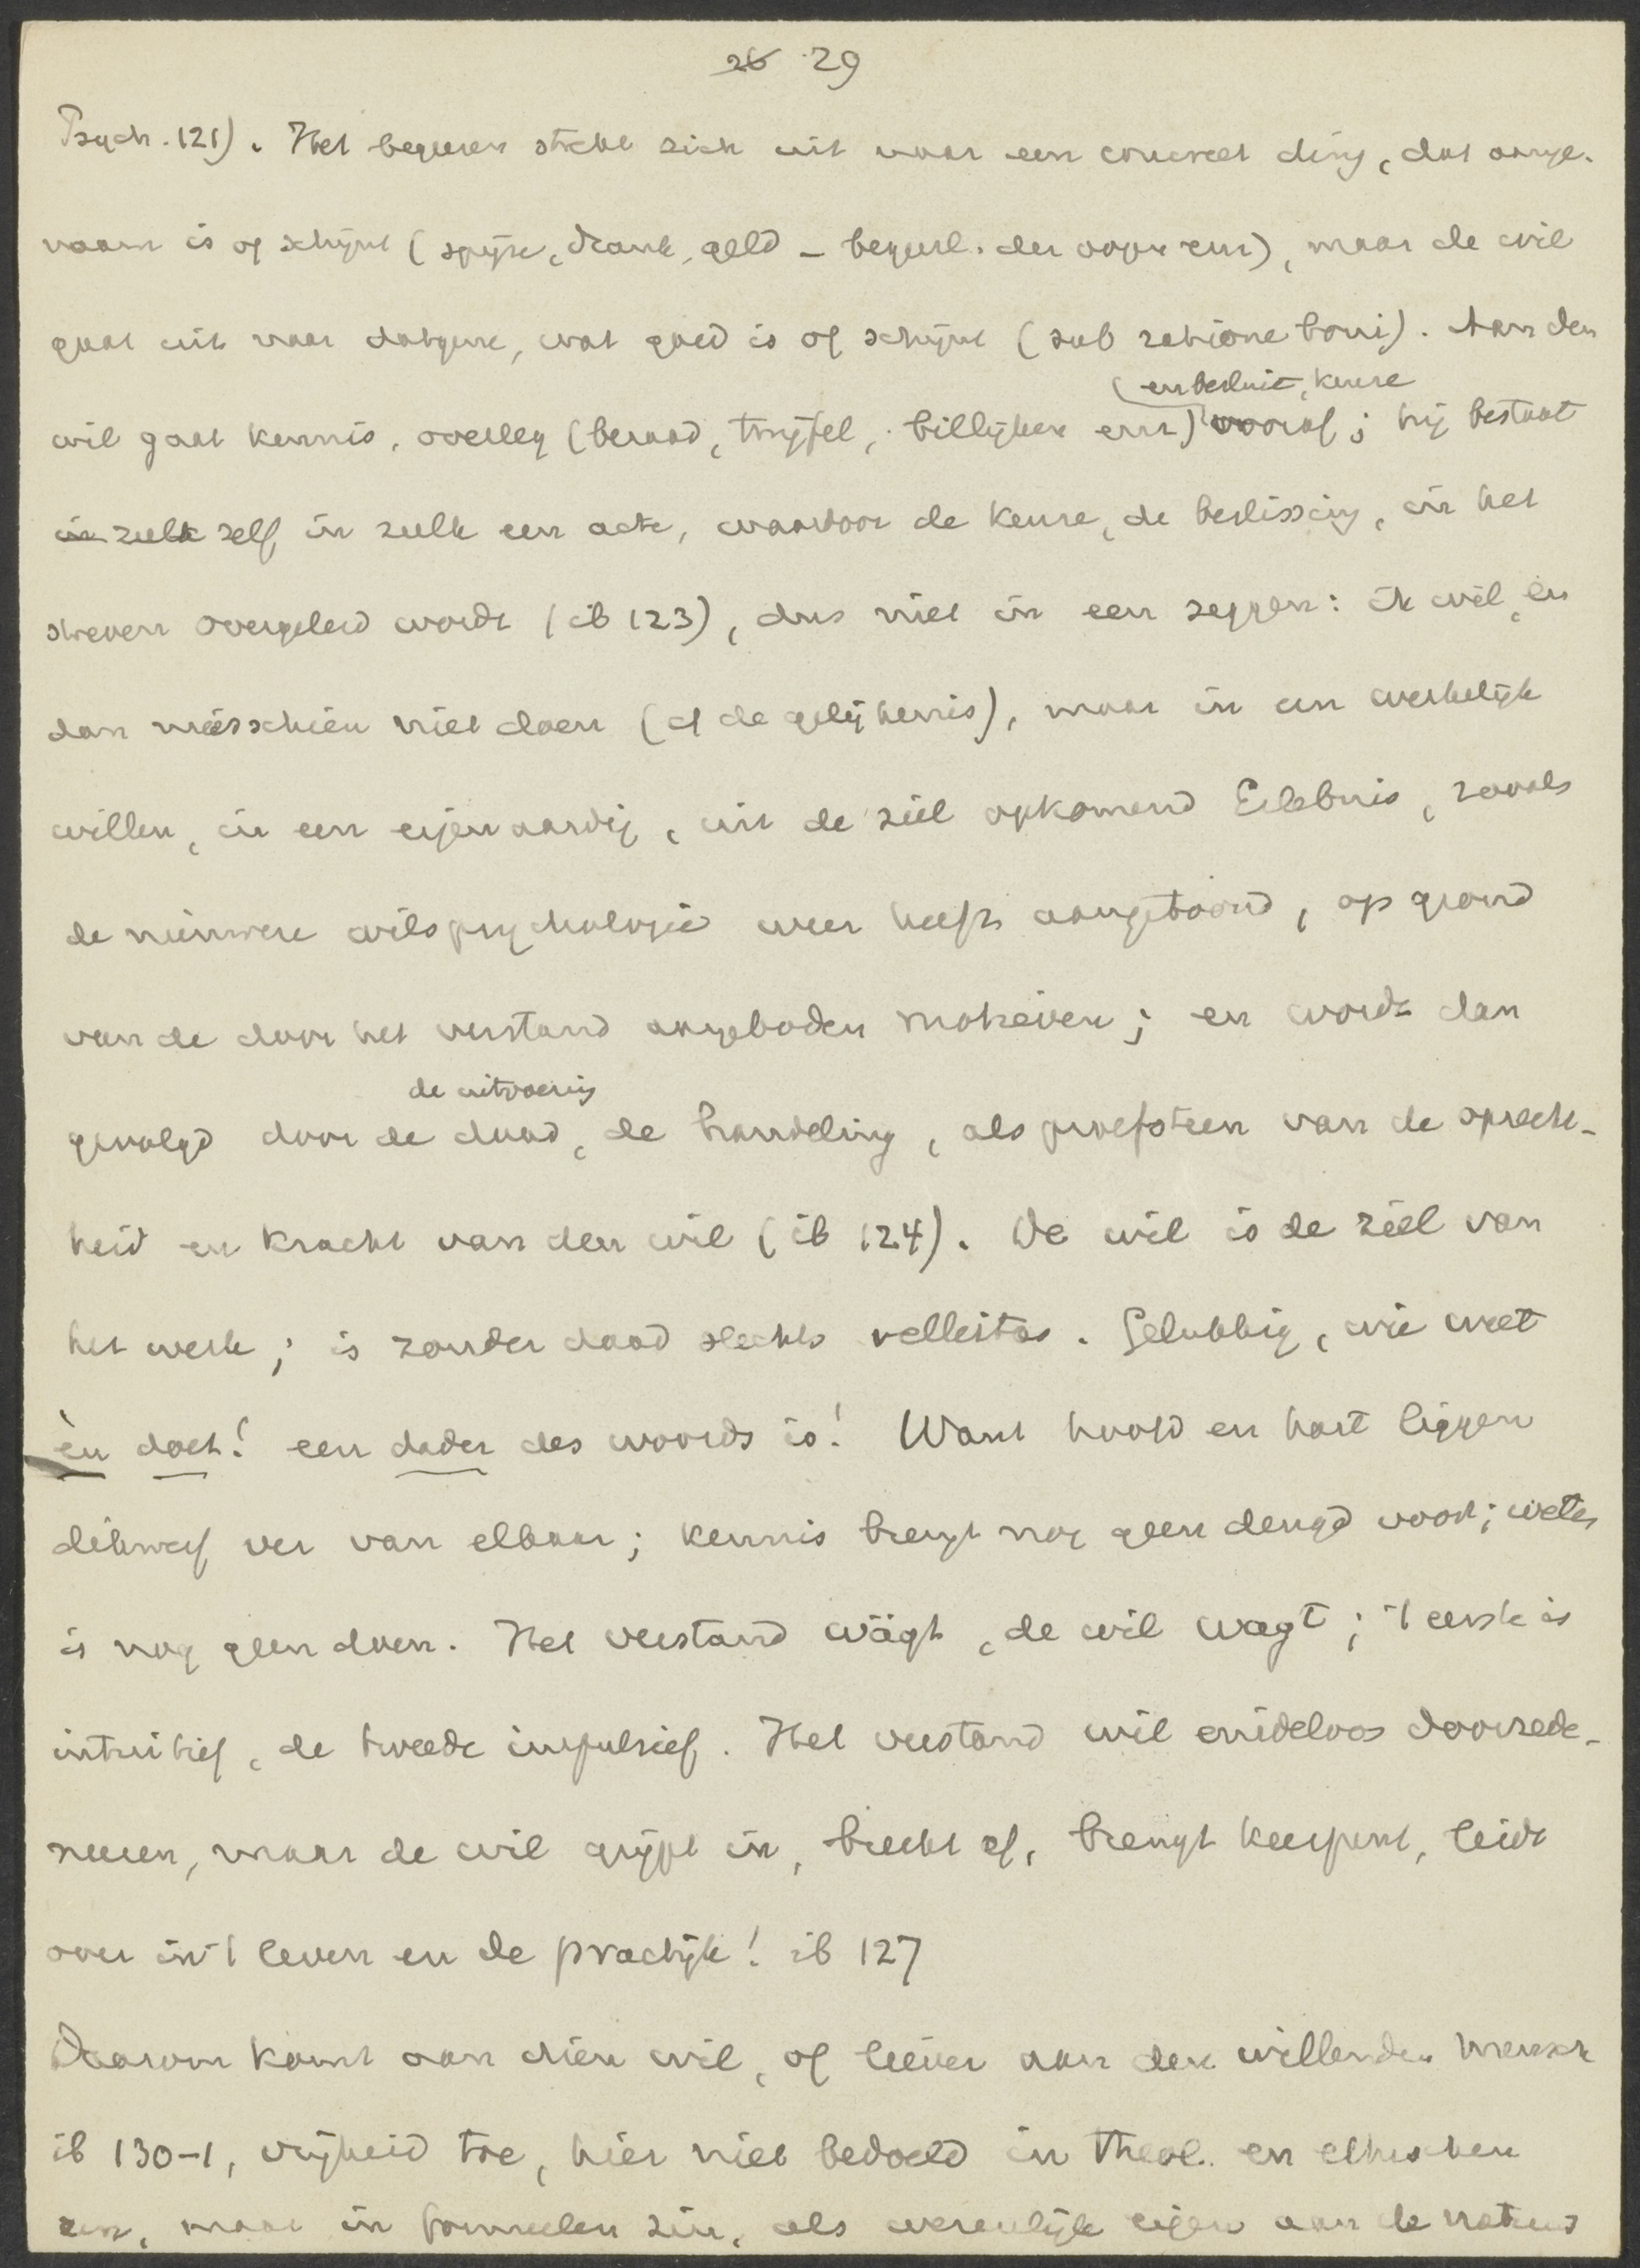 26 29
Psych. 121). Het begeeren strekt zich uit naar een concreet ding, dat aange-
naam is of schijnt (spijze, drank, geld – begeerl. der oogen enz), maar de wil
gaat uit naar datgene, wat goed is of schijnt (sub ratione boni). Aan den
en besluit, keuze
wil gaat kennis, overleg (beraad, twijfel, billijken enz) vooraf; hij bestaat
in zulk zelf in zulk een acte, waardoor de keuze, de beslissing, in het
streven overgeleid wordt (ib 123), dus niet in een zeggen: ik wil, en
dan misschien niet doen (cf de gelijkenis), maar in een werkelijk
willen, in een eigenaardig, uit de ziel opkomend Erlebnis, zooals
de nieuwere wilspsychologie weer heeft aangetoond, op grond
van de door het verstand aangeboden motieven; en wordt dan
de uitvoering
gevolgd door de daad, de handeling, als proefsteen van de oprecht-
heid en kracht van den wil (ib 124). De wil is de ziel van
het werk; is zonder daad slechts velleitas. Gelukkig, wie weet
èn doet! een dader des woords is! Want hoofd en hart liggen
dikwerf ver van elkaar; kennis brengt nog geen deugd voort; weten
is nog geen doen. Het verstand wägt, de wil wagt; 't eerste is
intuitief, de tweede impulsief. Het verstand wil eindeloos doorrede-
neeren, maar de wil grijpt in, breekt af, brengt keerpunt, leidt
over in 't leven en de practijk! ib 127
Daarom komt aan dien wil, of liever aan den willenden mensch
ib 130-1, vrijheid toe, hier niet bedoeld in theol. en ethischen
zin, maar in formeelen zin, als wezenlijk eigen aan de natuur